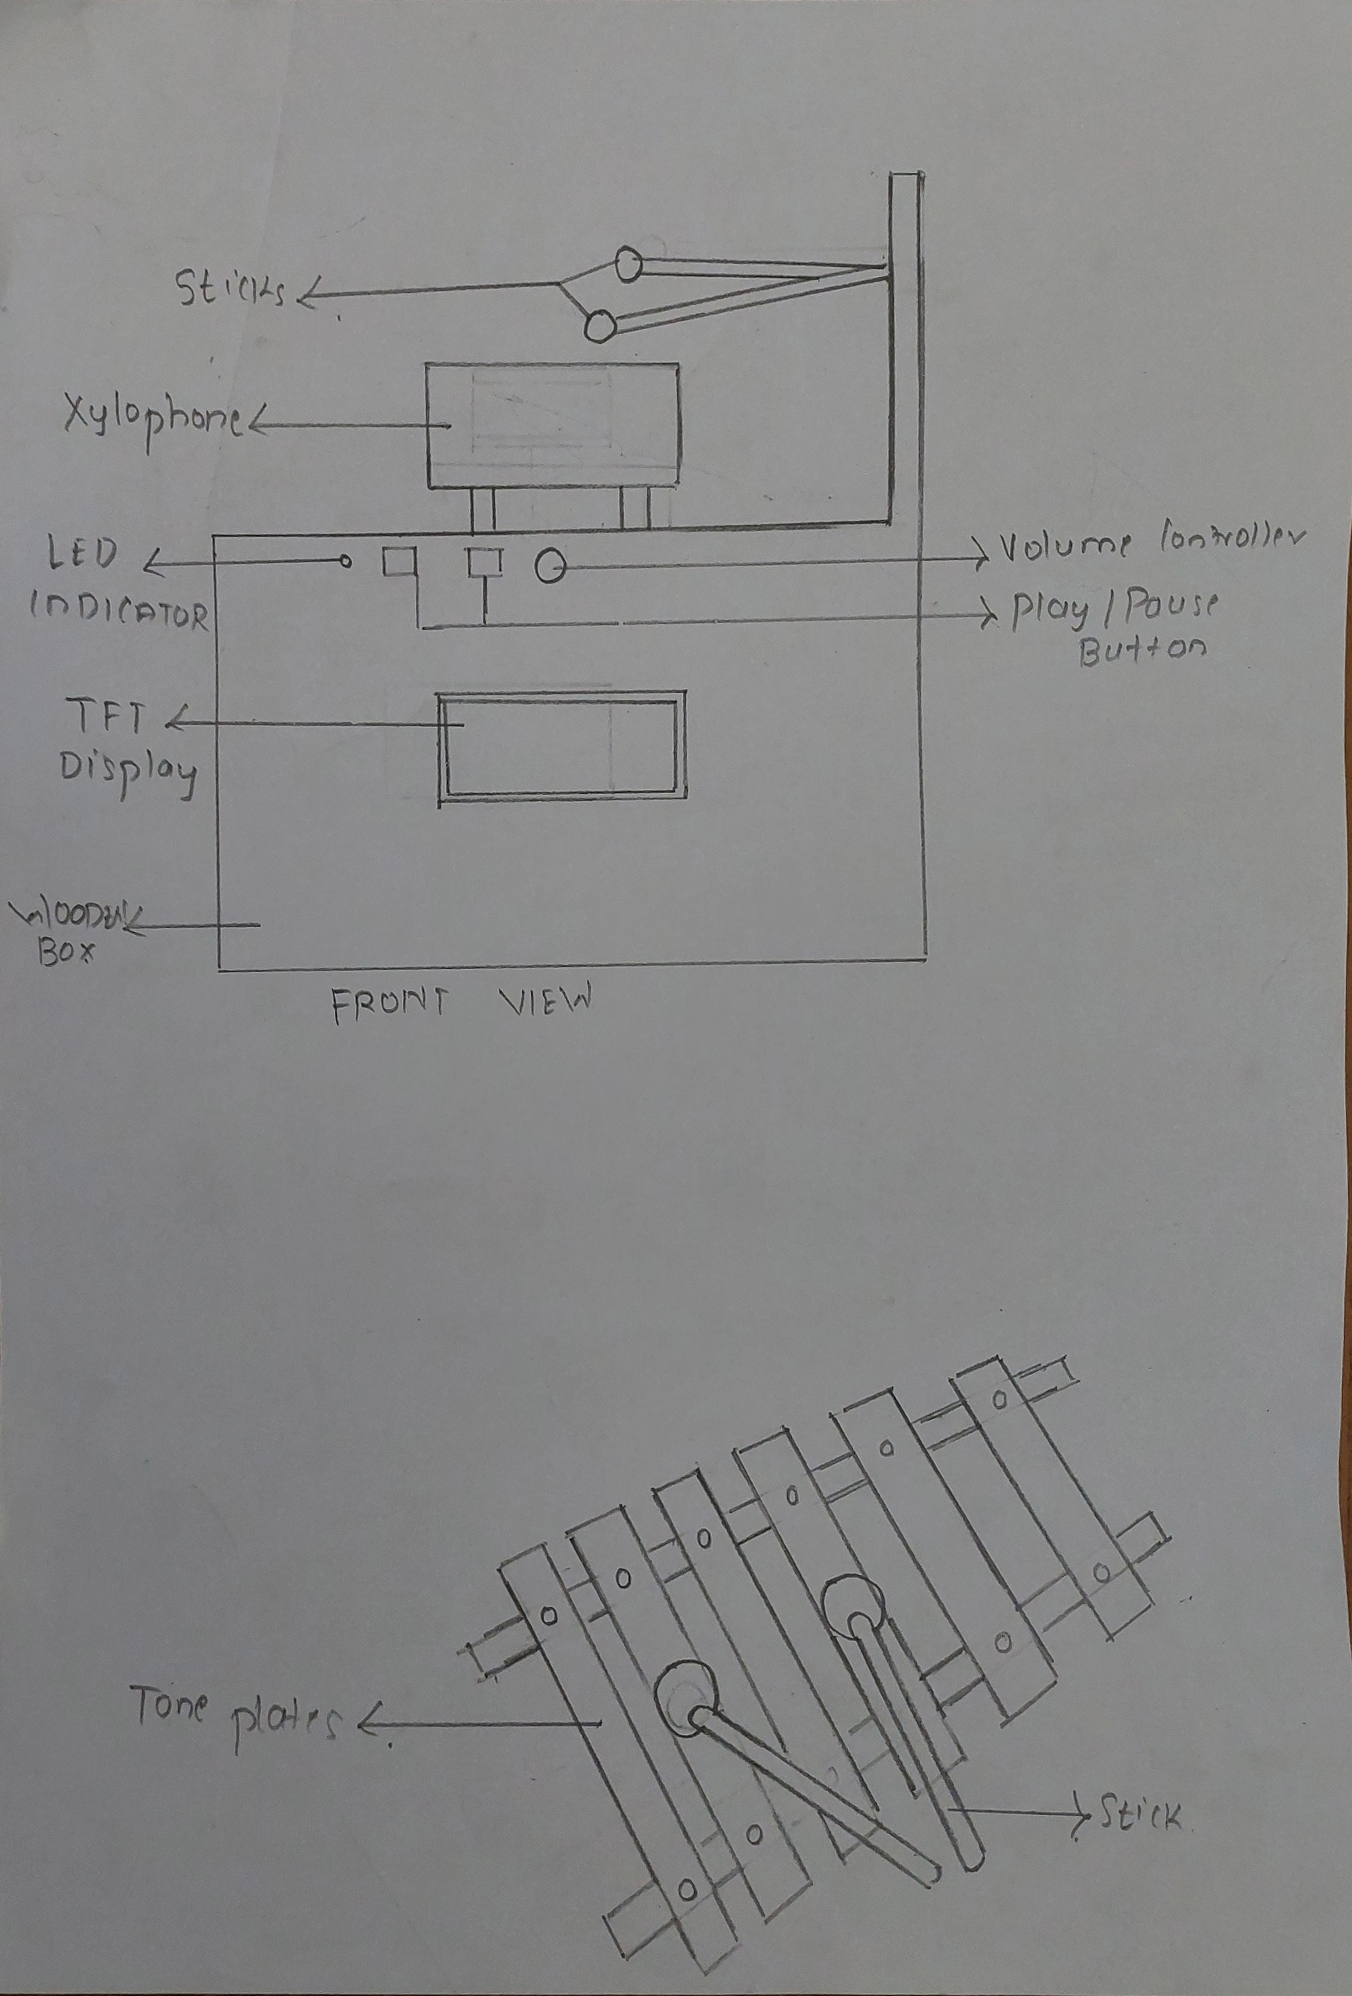 Sticks
Xylophone
LED
INDICATOR
Volume Controller
Play / Pause
Button
TFT
Display
WOODEN
BOX
FRONT VIEW
Tone plates
Stick